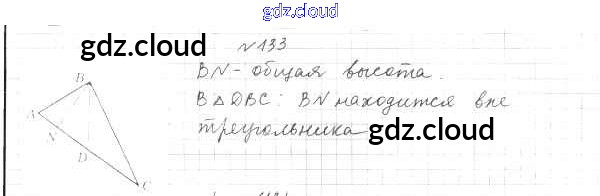 gdz.cloud
gdz.cloud
№133
BN - общая высота.
В △DBC: BN находится вне
треугольника
gdz.cloud
B
A
N
D
C